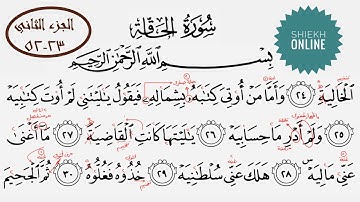 الجزء الثاني
٢٣-٥٢
سُورَةُ الْحَاقَّةِ
SHIEKH
ONLINE
بِسْمِ اللَّهِ الرَّحْمَٰنِ الرَّحِيمِ
الْخَالِيَةِ ٢٤ وَأَمَّا مَنْ أُوتِيَ كِتَابَهُ بِشِمَالِهِ فَيَقُولُ يَا لَيْتَنِي لَمْ أُوتَ كِتَابِيَهْ
٢٥ وَلَمْ أَدْرِ مَا حِسَابِيَهْ ٢٦ يَا لَيْتَهَا كَانَتِ الْقَاضِيَةَ ٢٧ مَا أَغْنَىٰ
عَنِّي مَالِيَهْ ٢٨ هَلَكَ عَنِّي سُلْطَانِيَهْ ٢٩ خُذُوهُ فَغُلُّوهُ ٣٠ ثُمَّ الْجَحِيمَ